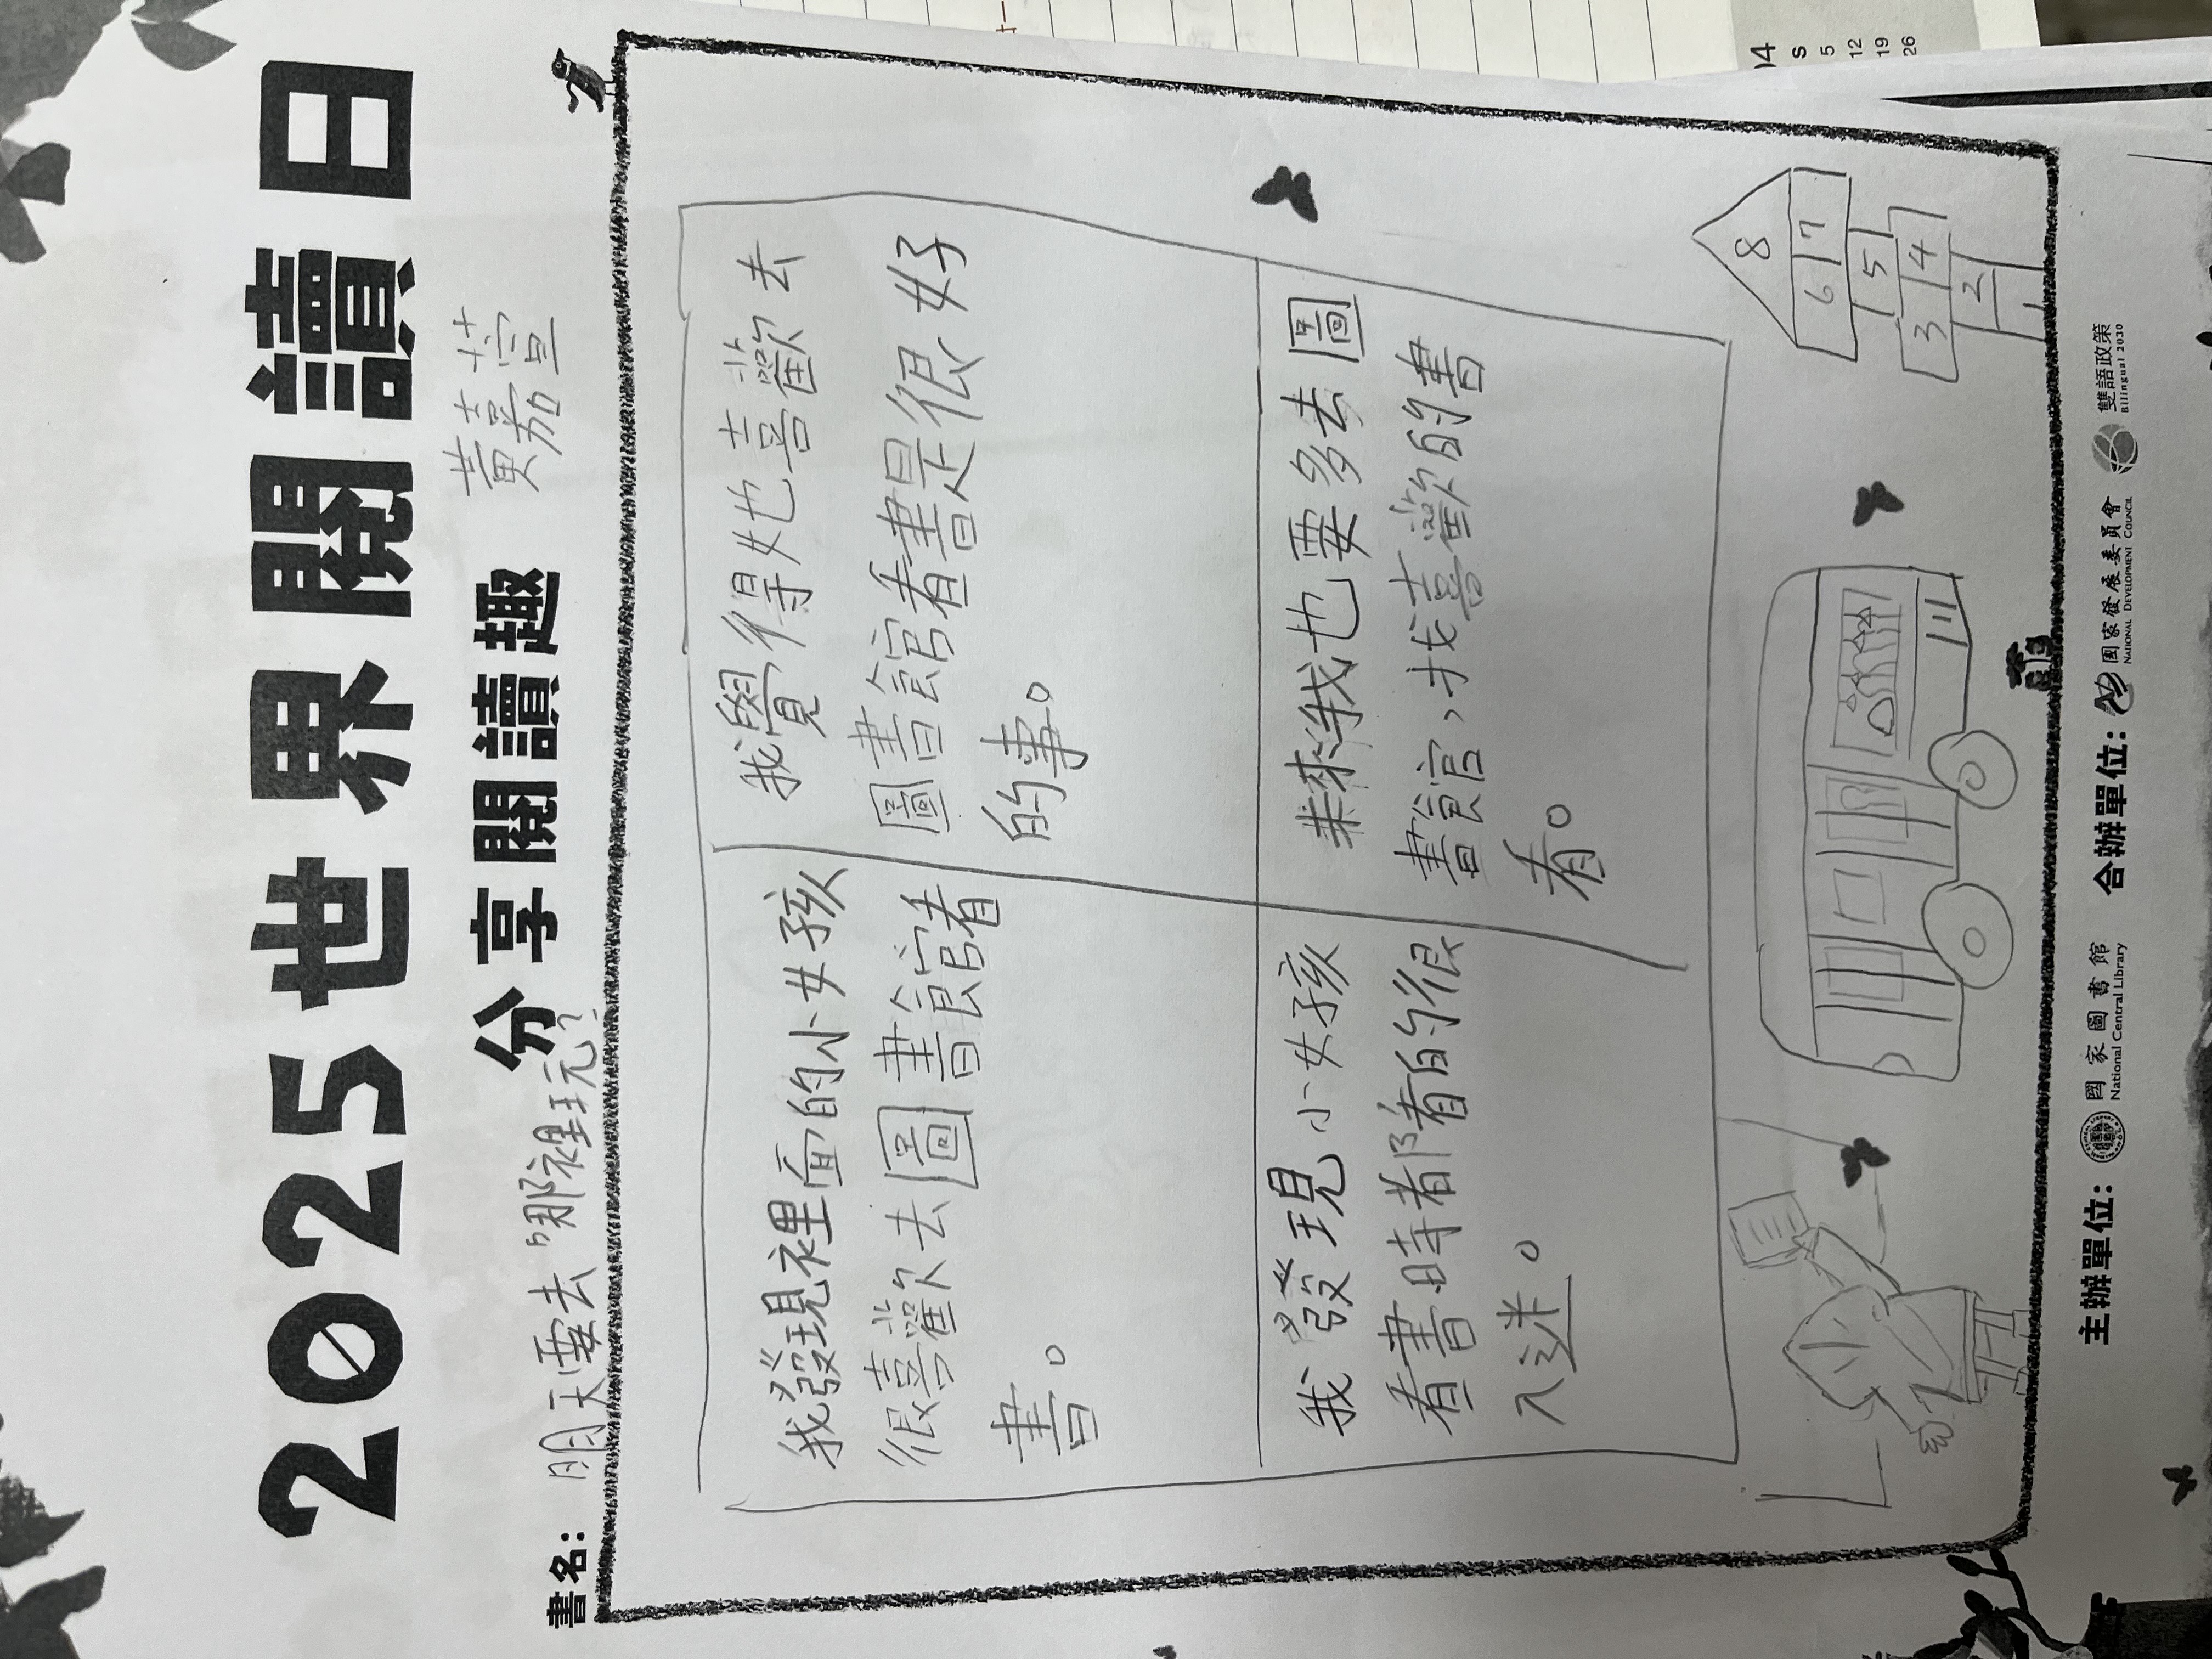 2025世界閱讀日
分享閱讀趣
黃嘉萱
書名：明天要去哪裡玩？
我發現裡面的小女孩
很喜歡去圖書館看
書。
我覺得她也喜歡去
圖書館看書是很好
的事。
我發現小女孩
看書時都看的很
入迷。
未來我也要多去圖
書館，找喜歡的書
看。
8
6 7
5
3 4
2
1
主辦單位：
國家圖書館
National Central Library
合辦單位：
國家發展委員會
National Development Council
雙語政策
Bilingual 2030
04
S
5
12
19
26